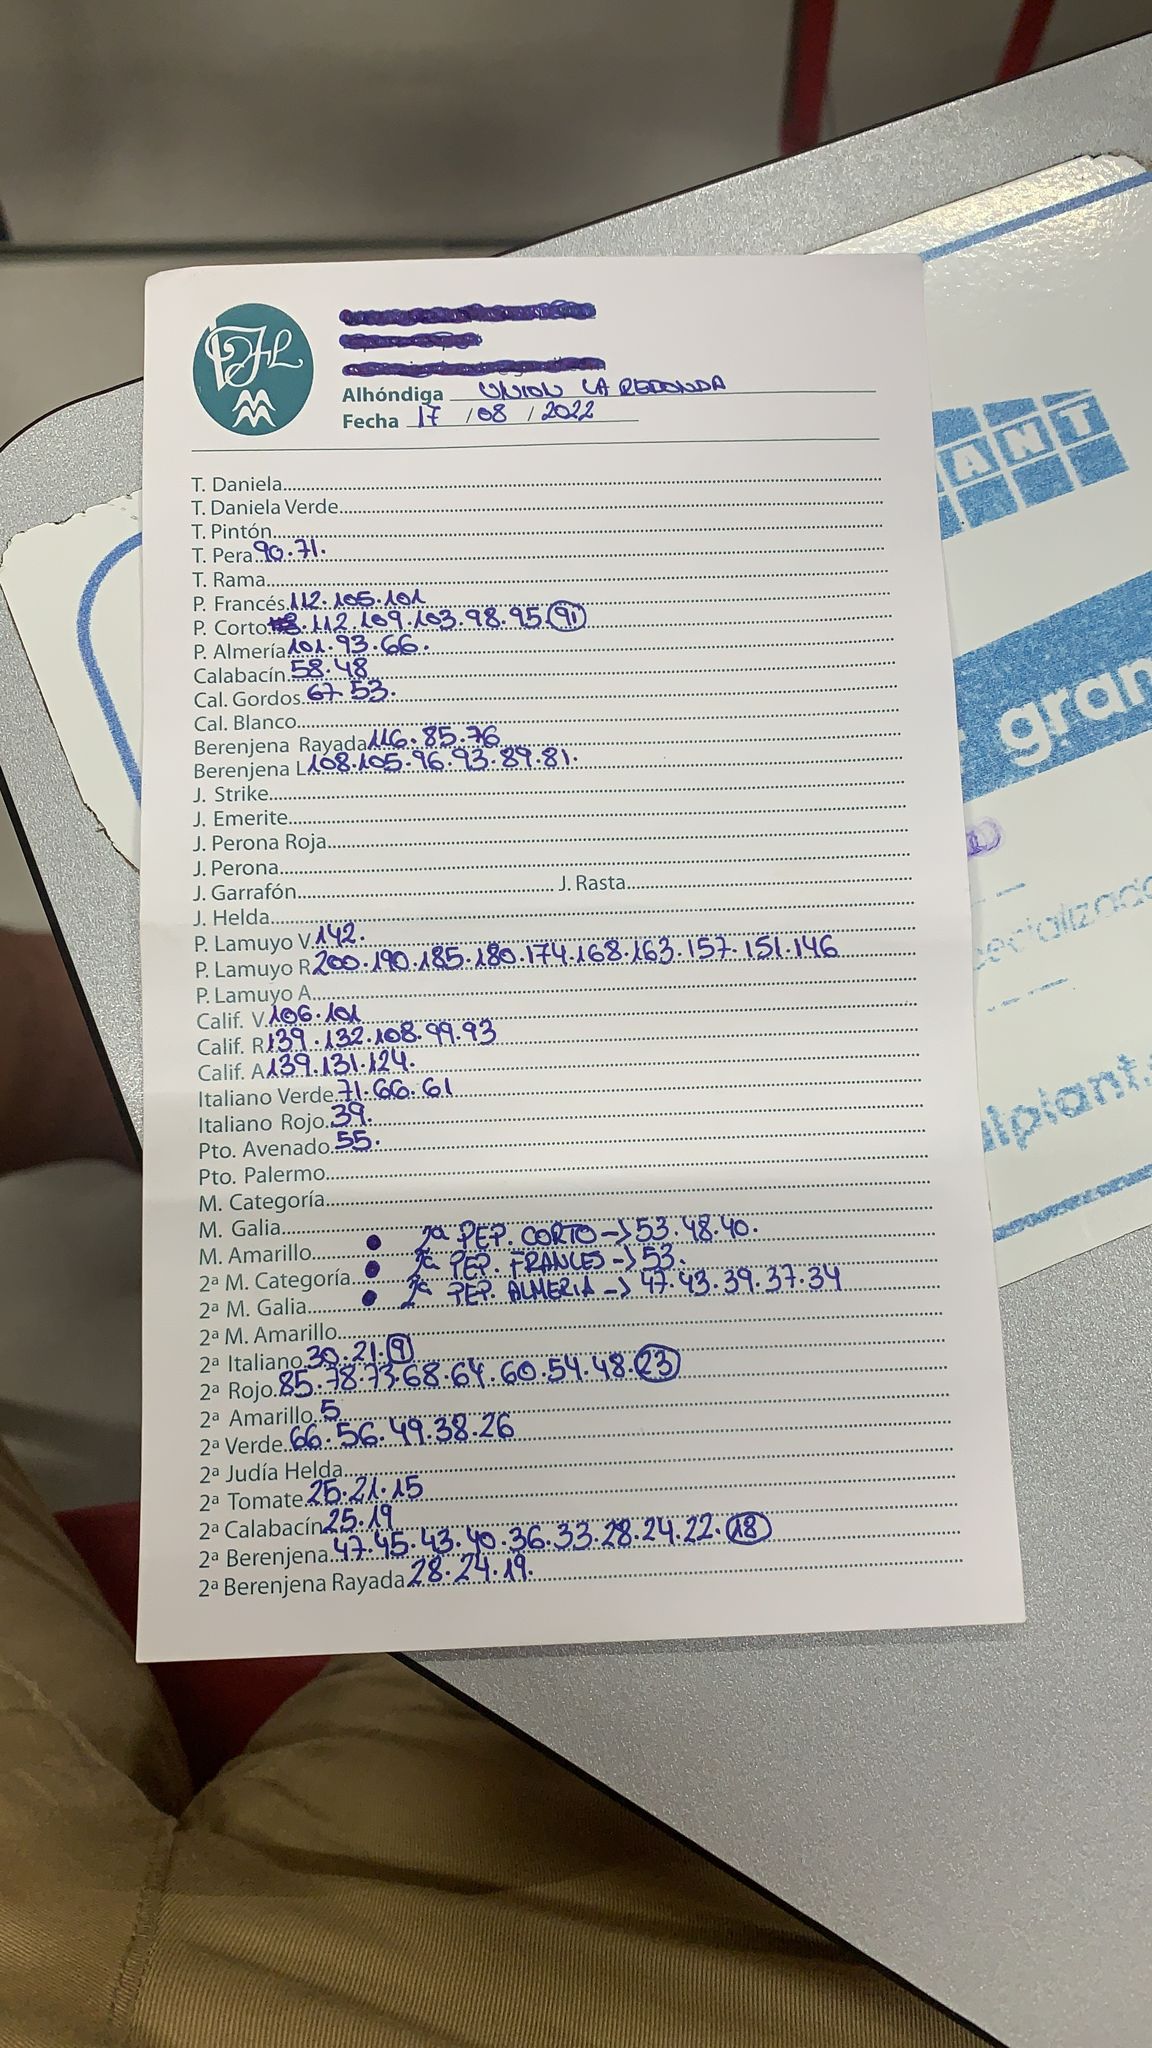 JFL
Alhóndiga UNION LA REDONDA
Fecha 17 / 08 / 2022
T. Daniela
T. Daniela Verde
T. Pintón
T. Pera 90.71.
T. Rama
P. Francés 112.105.101
P. Corto .112.109.103.98.95.91
P. Almería 101.93.66.
Calabacín 58.48
Cal. Gordos 67.53.
Cal. Blanco
Berenjena Rayada 116.85.76
Berenjena L 108.105.96.93.89.81.
J. Strike
J. Emerite
J. Perona Roja
J. Perona
J. Garrafón J. Rasta
J. Helda
P. Lamuyo V. 142.
P. Lamuyo R 200.190.185.180.174.168.163.157.151.146
P. Lamuyo A
Calif. V. 106.101
Calif. R 139.132.108.99.93
Calif. A 139.131.124.
Italiano Verde 71.66.61
Italiano Rojo 39.
Pto. Avenado 55.
Pto. Palermo
M. Categoría
M. Galia
M. Amarillo • 2ª PEP. CORTO -> 53.48.40.
2ª M. Categoría • 2ª PEP. FRANCES -> 53.
2ª M. Galia • 2ª PEP. ALMERIA -> 47.43.39.37.34
2ª M. Amarillo
2ª Italiano 30.21.9
2ª Rojo 85.78.73.68.64.60.54.48.23
2ª Amarillo 5
2ª Verde 66.56.49.38.26
2ª Judía Helda
2ª Tomate 25.21.15
2ª Calabacín 25.19
2ª Berenjena 47.45.43.40.36.33.28.24.22.18
2ª Berenjena Rayada 28.24.19.
ANT
gran
ecializado
alplant.